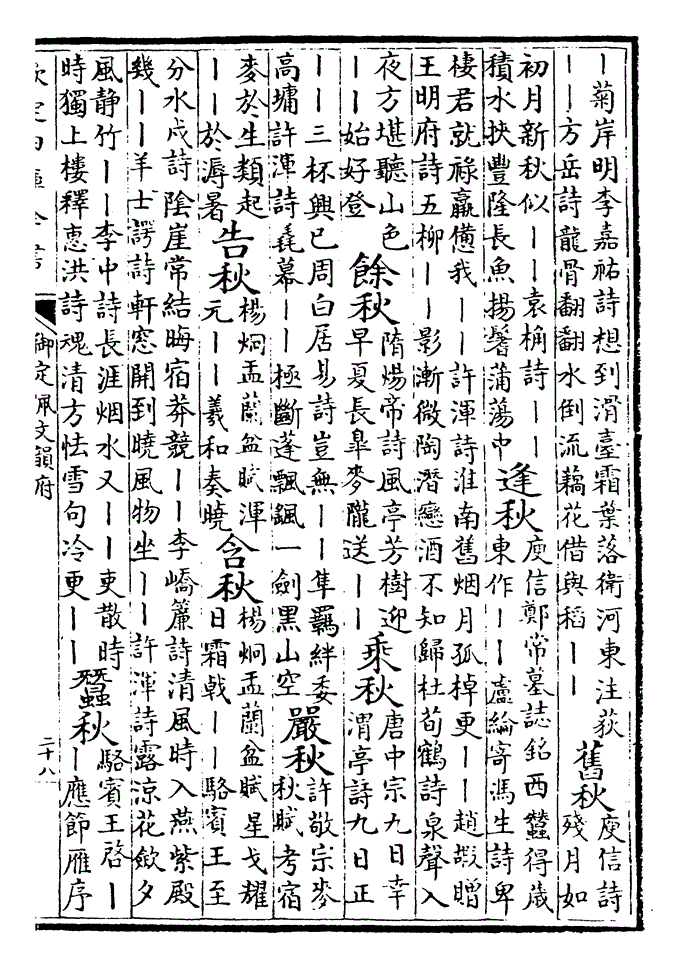 丨菊岸明李嘉祐詩想到滑臺霜葉落衛河東注荻
丨丨方岳詩龍骨翻翻水倒流藕花借與稻丨丨
舊秋
庾信詩
殘月如
初月新秋似丨丨袁桷詩丨丨
積水挾豐隆長魚揚鬐蒲蕩中
逢秋
庾信鄭常墓誌銘西蠶得歲
東作丨丨盧綸寄馮生詩卑
棲君就祿羸憊我丨丨許渾詩淮南舊烟月孤棹更丨丨趙嘏贈
王明府詩五柳丨丨影漸微陶潛戀酒不知歸杜荀鶴詩泉聲入
夜方堪聽山色
丨丨始好登
餘秋
隋煬帝詩風亭芳樹迎
早夏長皐麥隴送丨丨
乘秋
唐中宗九日幸
渭亭詩九日正
丨丨三杯興已周白居易詩豈無丨丨隼羈絆委
高墉許渾詩毳幕丨丨極斷蓬飄颻一劍黑山空
嚴秋
許敬宗麥
秋賦考宿
麥於生類起
丨丨於溽暑
告秋
楊炯盂蘭盆賦渾
元丨丨羲和奏曉
含秋
楊炯盂蘭盆賦星戈耀
日霜戟丨丨駱賓王至
分水戍詩陰崖常結晦宿莽競丨丨李嶠簾詩清風時入燕紫殿
幾丨丨羊士諤詩軒窓開到曉風物坐丨丨許渾詩露涼花歛夕
風静竹丨丨李中詩長涯烟水又丨丨吏散時
時獨上樓釋惠洪詩魂清方怯雪句冷更丨丨
蠶秋
駱賓王啓丨
丨應節雁序
御定佩文韻府
二十八